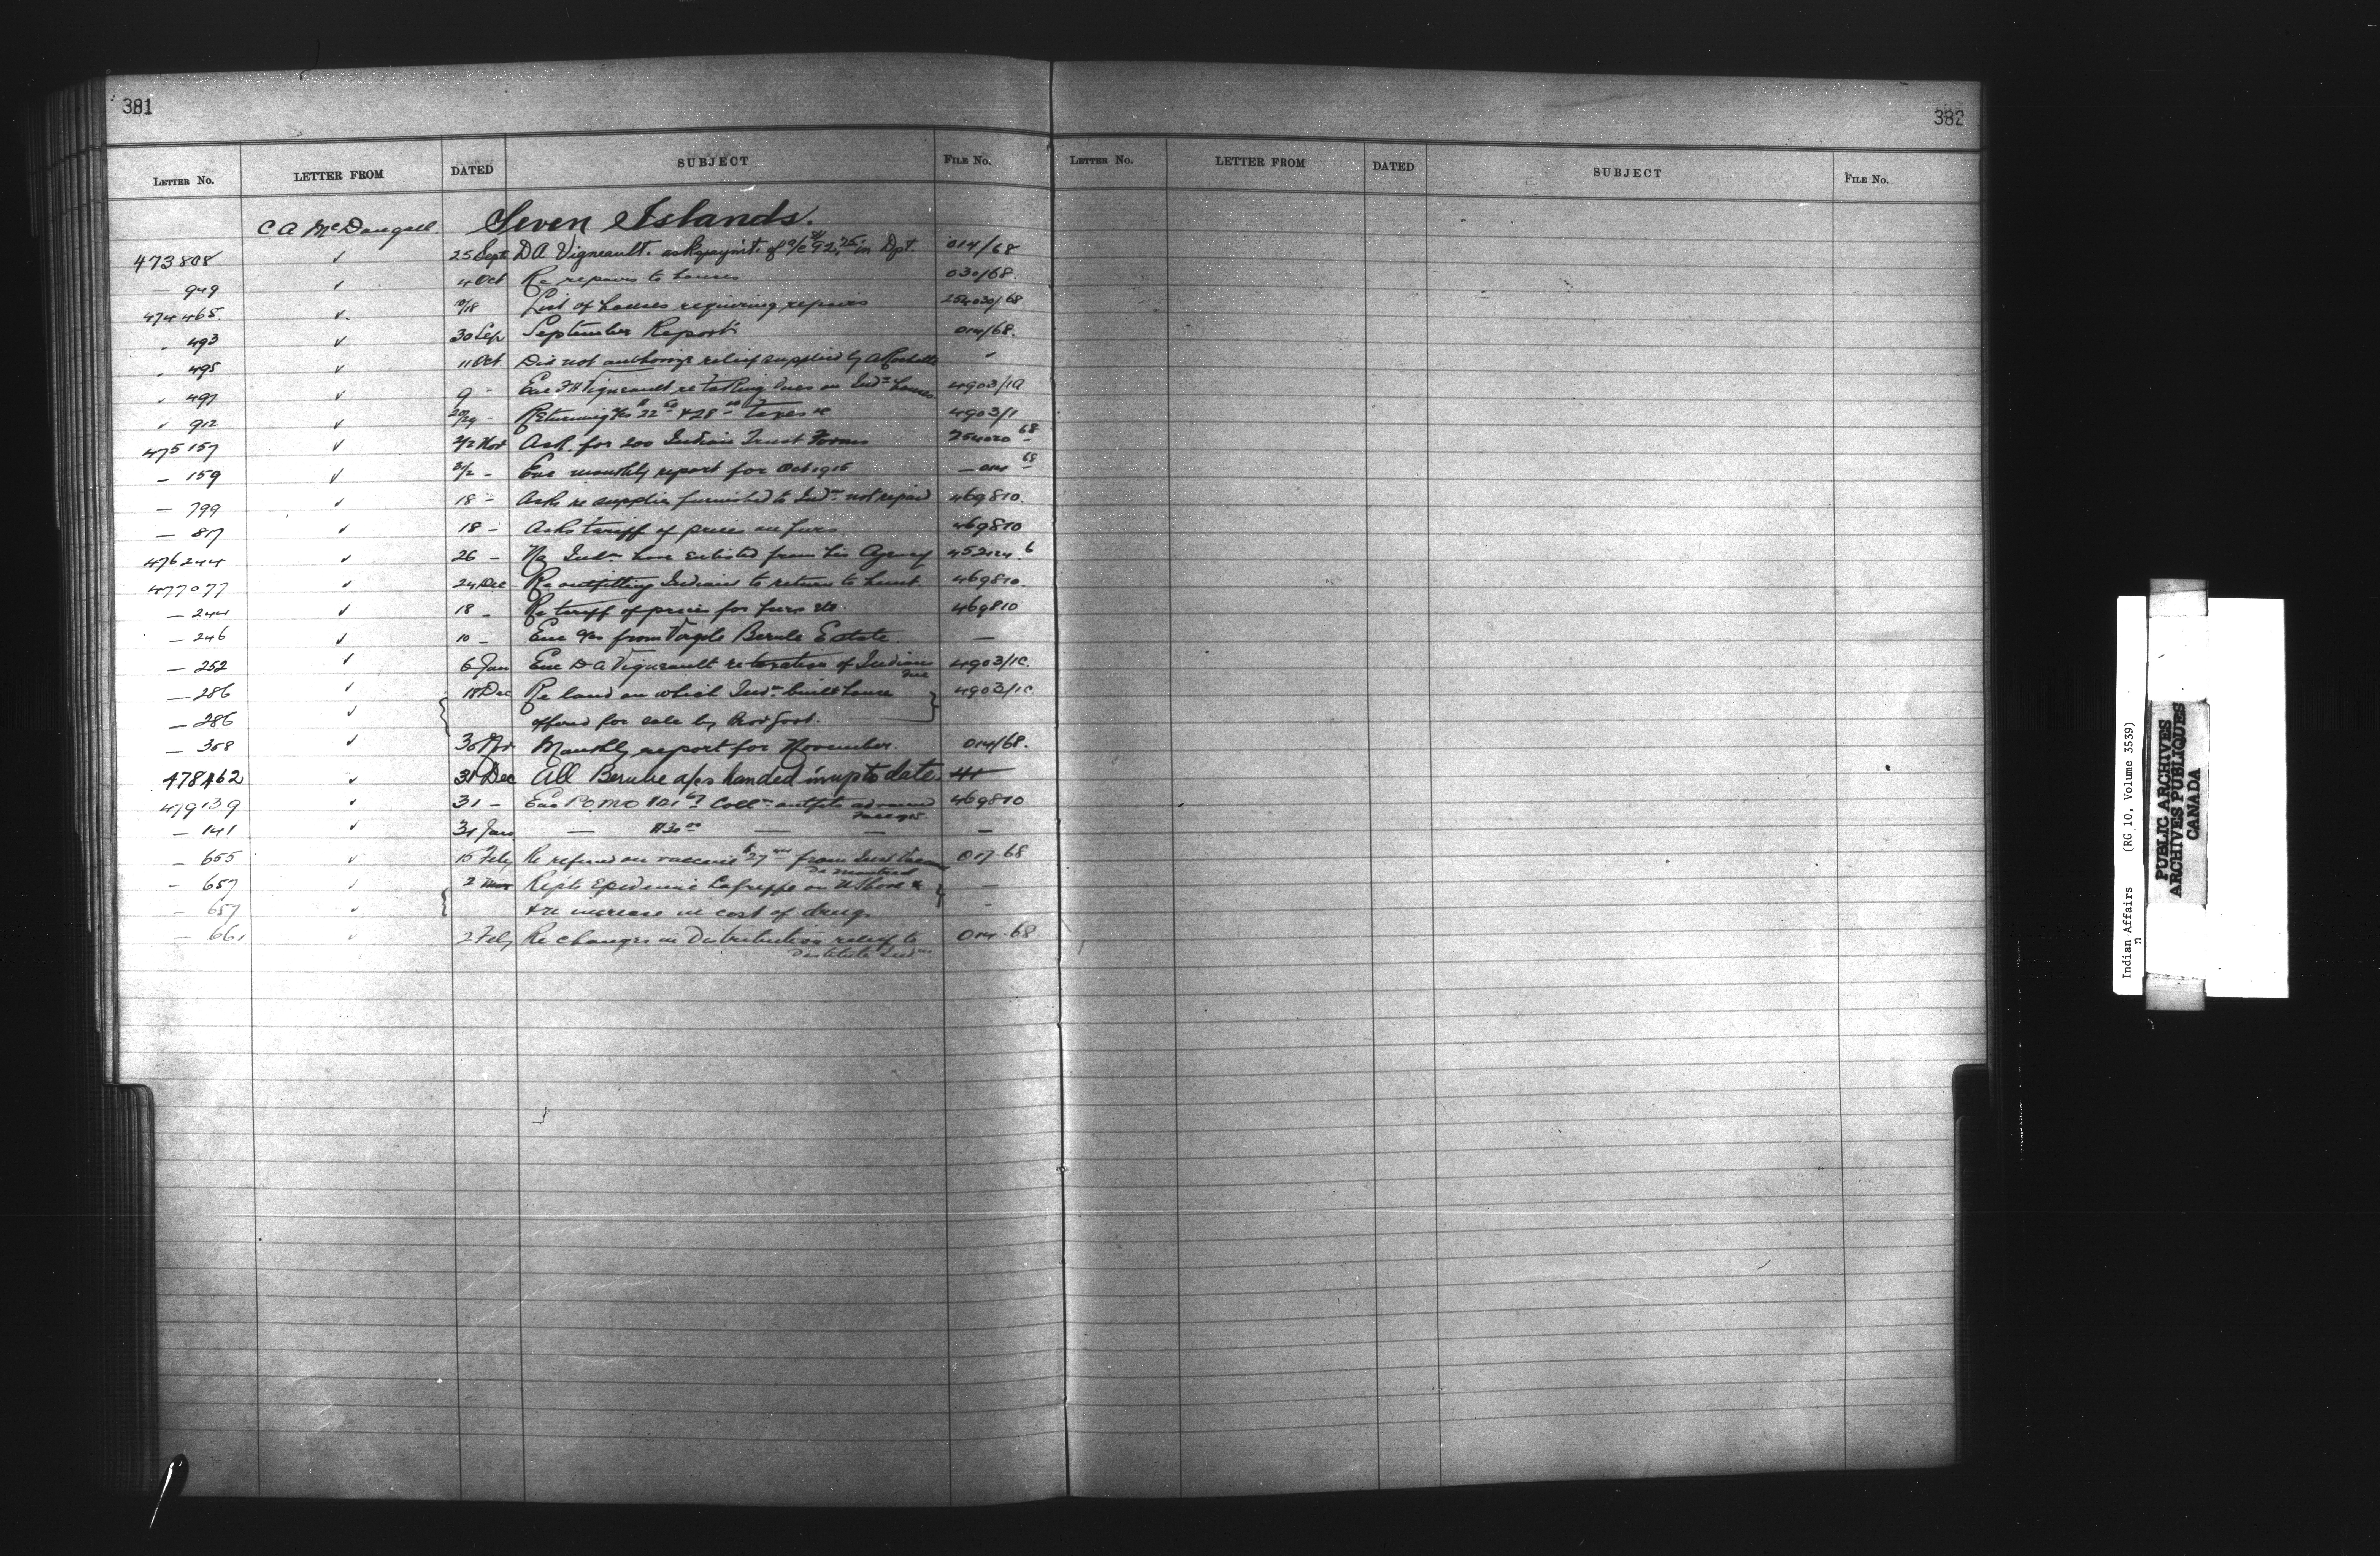 381
LETTER NO. LETTER FROM DATED SUBJECT FILE NO.
C A McDougall Seven Islands.
473808 ✓ 25 Sept D A Vigneault. asks paym't. of a/c $92.25 in Dpt. 014/68
— 949 ✓ 4 Oct Re repairs to houses 030/68.
474465. ✓ 10/18 List of houses requiring repairs 254030/68
" 493 ✓ 30 Sep September Report 014/68.
" 495 ✓ 11 Oct Did not authorize relief supplied by A Rochette "
" 497 ✓ 9 " Enc Vigneault re taxes on Indn houses 4903/1
" 912 ✓ 20/29 - Returning 22 & 28 Taxes re 4903/1
475157 ✓ 2/2 Nov Ask. for 200 Indian Trust Forms 254020 68
— 159 ✓ 2/2 - Enc monthly report for Oct 1915 — 014 68
— 799 ✓ 18 - Asks re supplies furnished to Indns not repaid 469810.
— 817 ✓ 18 - Asks tariff of prices on furs 469810
476244 ✓ 26 - No Indns have enlisted from his Agency 452124.6
477077 ✓ 24 Dec Re outfitting Indians to return to hunt. 469810.
— 244 ✓ 18 - Re tariff of prices for furs etc. 469810
— 246 ✓ 10 - Enc a/cs from Berube Estate —
— 252 ✓ 6 Jan Enc D A Vigneault re taxation of Indian 4903/1C.
— 286 ✓ 18 Dec Re land on which Indns built house 4903/1C.
— 286 ✓ offered for sale by Prov Govt.
— 308 ✓ 30 Nov Monthly report for November. 014/68.
478462 ✓ 31 Dec All Berube a/cs handed in up to date.
479139 ✓ 31 - Enc P.O.M.O Colln outfits advanced 469810
— 141 ✓ 31 Jan — $30 00 — — —
— 655 ✓ 15 Feby Re refund on vaccine $27 from Inst
de Montreal 017-68
— 657 ✓ 2 Mar Repts Epidemic Lagrippe on N Shore & —
— 657 ✓ & re increase in cost of drugs. -
— 661 ✓ 2 Feby Re changes in Distribution relief to 014-68
destitute Indns
382
LETTER NO. LETTER FROM DATED SUBJECT FILE NO.
Indian Affairs (RG 10, Volume 3539)
PUBLIC ARCHIVES
ARCHIVES PUBLIQUES
CANADA